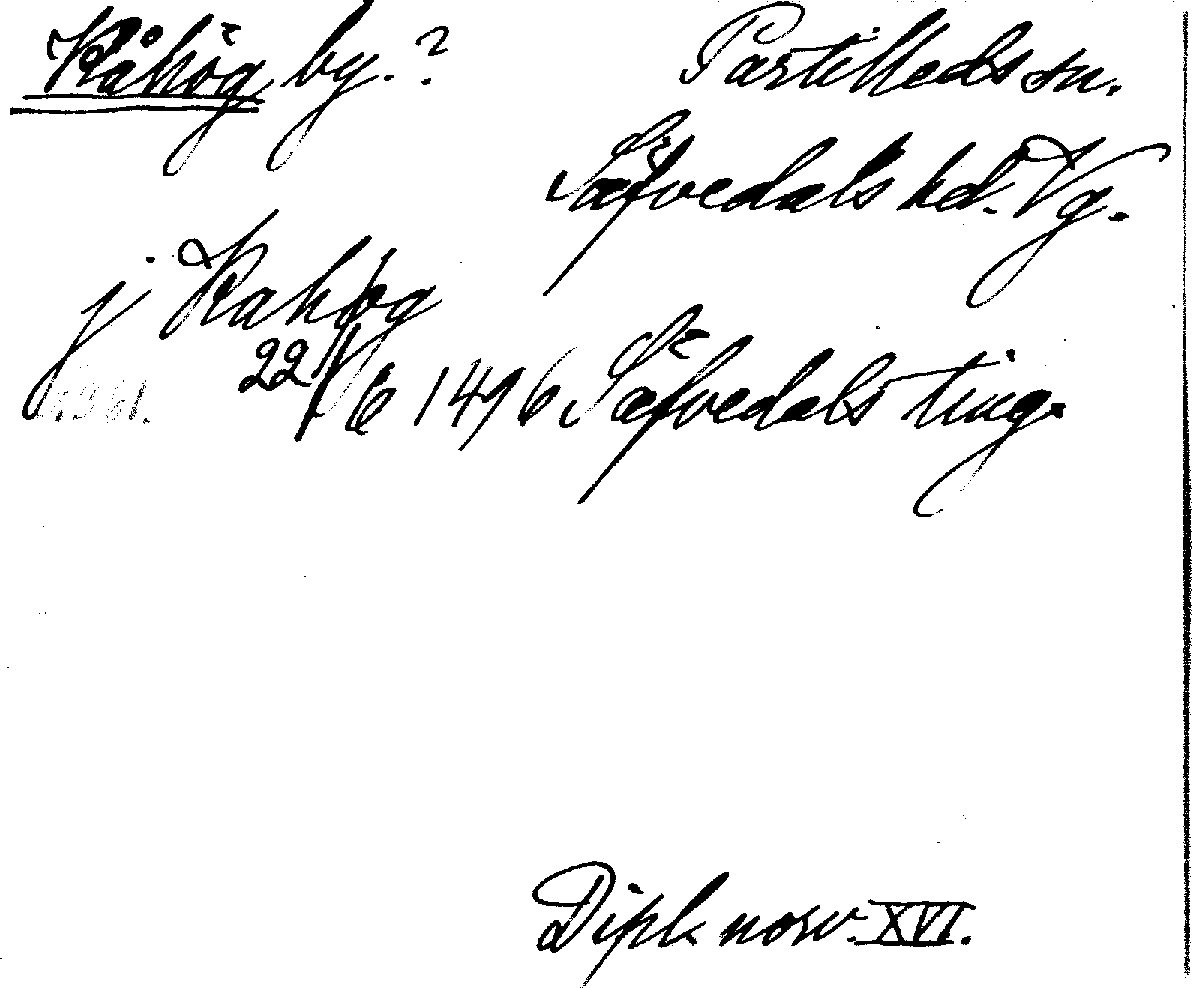 Råhög by.? Partilleds sn.
Säfvedals hd. Vg.
j Rahøg
22/6 1496 Säfvedals ting.
Dipl. norv. XVI.